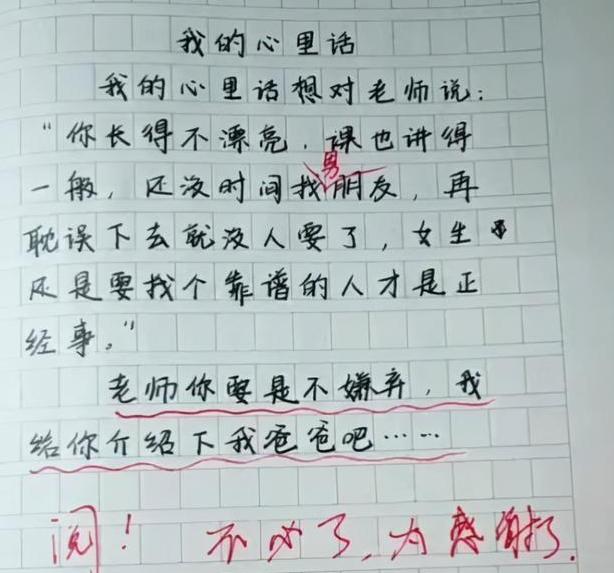 我的心里话
我的心里话想对老师说：
“你长得不漂亮，课也讲得
一般，还没时间找男朋友，再
耽误下去就没人要了，女生
还是要找个靠谱的人才是正
经事。”
老师你要是不嫌弃，我
给你介绍下我爸爸吧……
阅！ 不必了，为